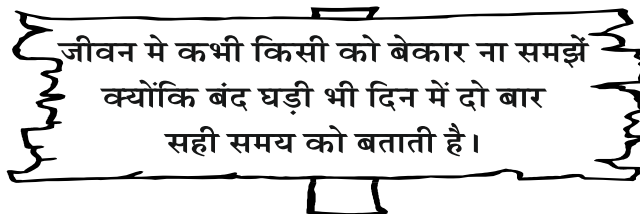 जीवन मे कभी किसी को बेकार ना समझें
क्योंकि बंद घड़ी भी दिन में दो बार
सही समय को बताती है।